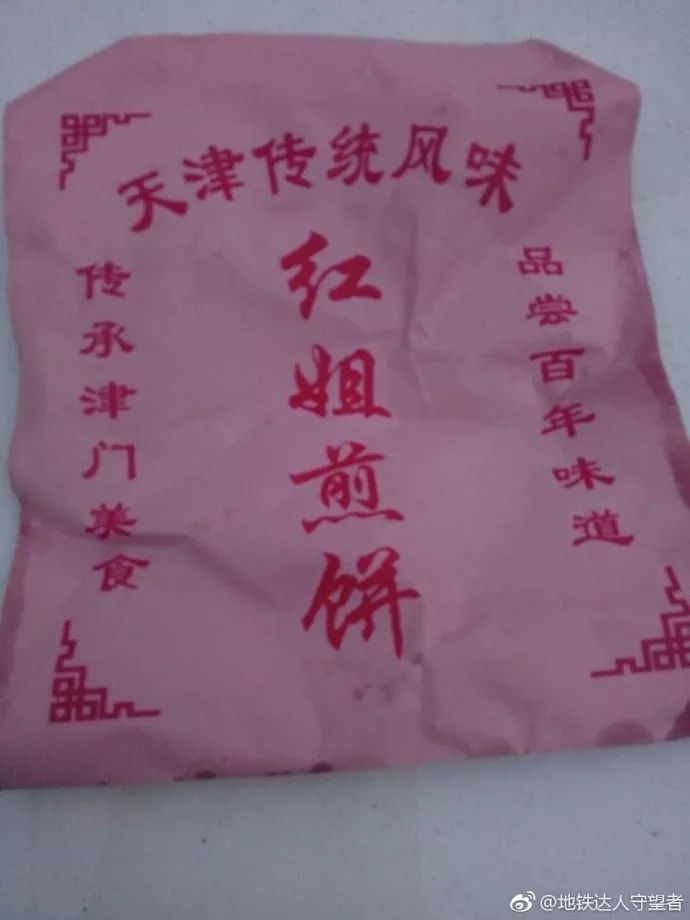 天津传统风味
品尝百年味道
红姐煎饼
传承津门美食
@地铁达人守望者